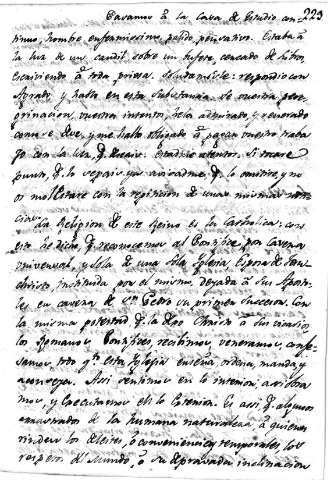 223
Pasamos â la Casa de Estudio con
timuo, hombre enfermissimo, palido, pensativo. Estaba â
la luz de un candil sobre un bufete cercado de libros,
escriviendo â toda priesa. Saludamosle: respondiò con
Agrado, y hablò en esta substancia. De vuestra pere
grinacion, vuestra intento, estoy admirado, y enterado
como è que, y me hallo obligado â pagar vuestro traba
jo con la luz, q desais: escuchad atentos. Si tocare
punto, q lo sepais ya avisadme, q lo omitire, y no
os molestare con la repeticion de unas mismas noti
cias.
La Religion de este Reino es la Catholica: con
siste en decir, q reconocemos al Pontifice por Cavesa
universal, y sola de una sola Iglesia, Esposa de Jesu
christo, instituida por el mismo, dexada â sus Aposto
les en cavesa de Sn. Pedro su primer succesor. Con
la misma potestad q la dio Christo â sus vicarios
los Romanos Pontifices, recibimos, veneramos, confe
samos, todo qto. esta Iglesia enseña, ordena, manda, y
aconseja. Assi sentimos en lo interior, assi obra
mos, y executamos en lo exterior. Es assi, q algunos
arrastrados de la humana naturaleza, â quienes
rinden los deleites, ô conveniencias temporales, los
respetos del Mundo, ô su depravada inclinacion